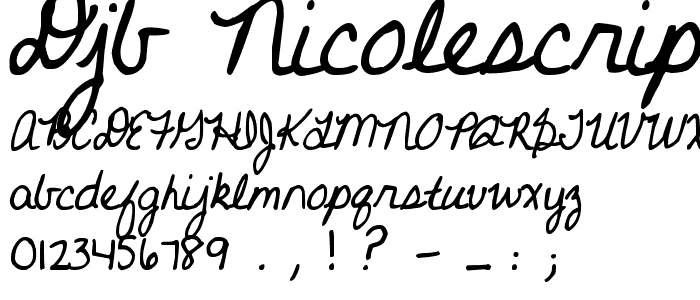 Djb Nicolescrip
ABCDEFGHIJKLMNOPQRSTUVWX
abcdefghijklmnopqrstuvwxyz
0123456789 . , ! ? - _ : ;